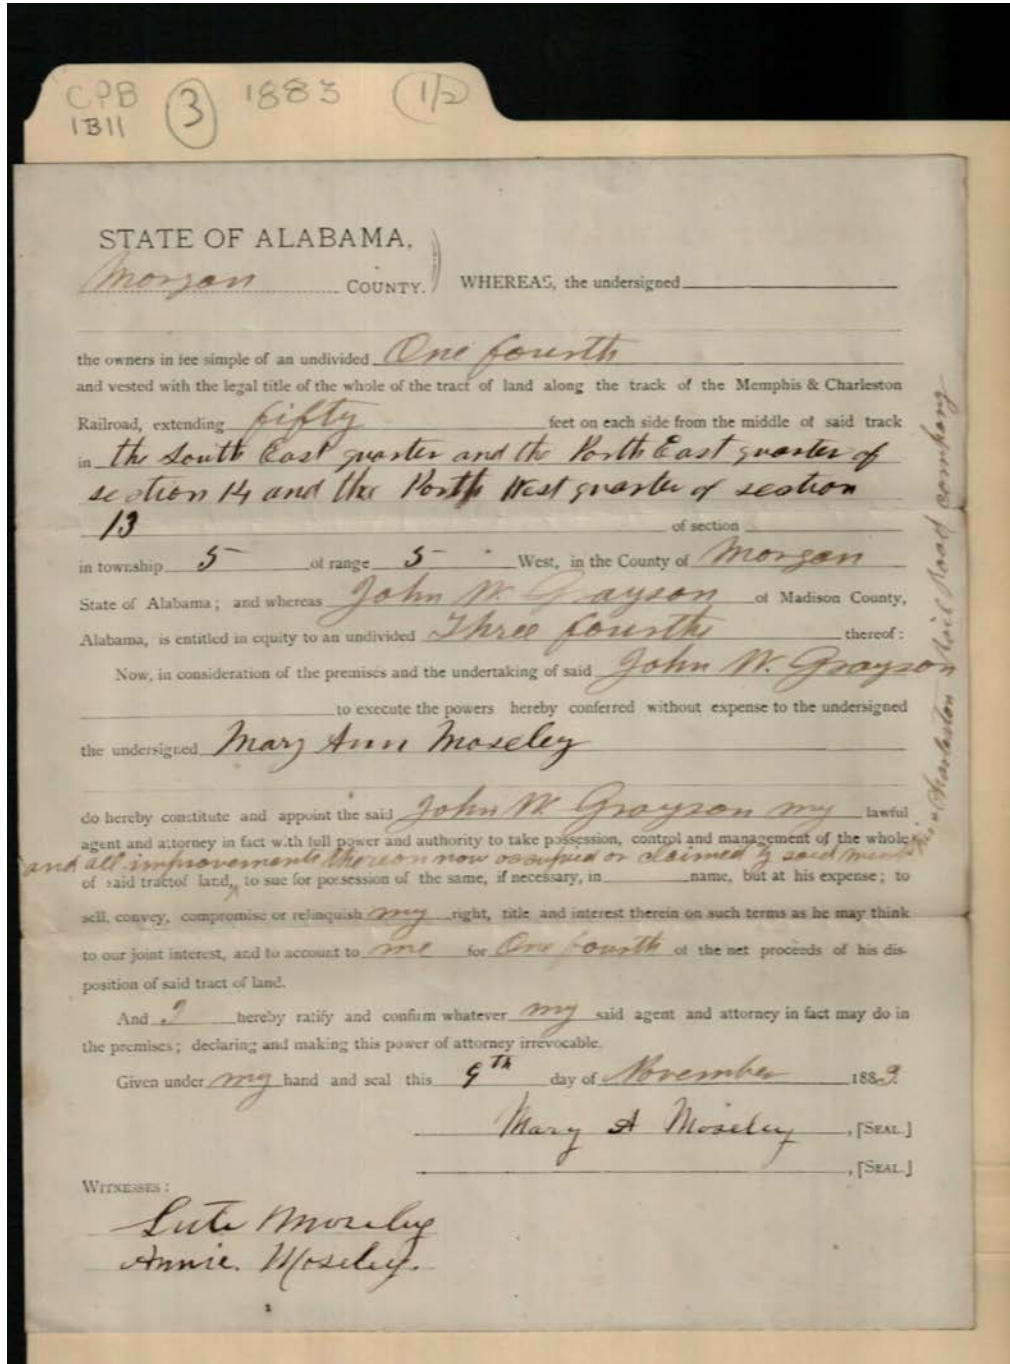 CPB 3 1883 (1/2)
1B11
STATE OF ALABAMA,
Morgan COUNTY. WHEREAS, the undersigned
the owners in fee simple of an undivided One fourth
and vested with the legal title of the whole of the tract of land along the track of the Memphis & Charleston
Railroad, extending fifty feet on each side from the middle of said track
in the South East quarter and the North East quarter of
section 14 and the North West quarter of section
13 of section
in township 5 of range 5 West, in the County of Morgan
State of Alabama; and whereas John W. Grayson of Madison County,
Alabama, is entitled in equity to an undivided Three fourths thereof:
Now, in consideration of the premises and the undertaking of said John W. Grayson
to execute the powers hereby conferred without expense to the undersigned
the undersigned Mary Ann Moseley
do hereby constitute and appoint the said John W Grayson my lawful
agent and attorney in fact with full power and authority to take possession, control and management of the whole
and all improvements thereon now occupied or claimed by said
Charleston Rail Road company
of said tract of land, to sue for possession of the same, if necessary, in name, but at his expense; to
sell, convey, compromise or relinquish my right, title and interest therein on such terms as he may think
to our joint interest, and to account to me for One fourth of the net proceeds of his dis-
position of said tract of land.
And I hereby ratify and confirm whatever my said agent and attorney in fact may do in
the premises; declaring and making this power of attorney irrevocable.
Given under my hand and seal this 9th day of November 1883.
Mary A Moseley, [SEAL.]
, [SEAL.]
WITNESSES:
Lute Moseley
Annie. Moseley.